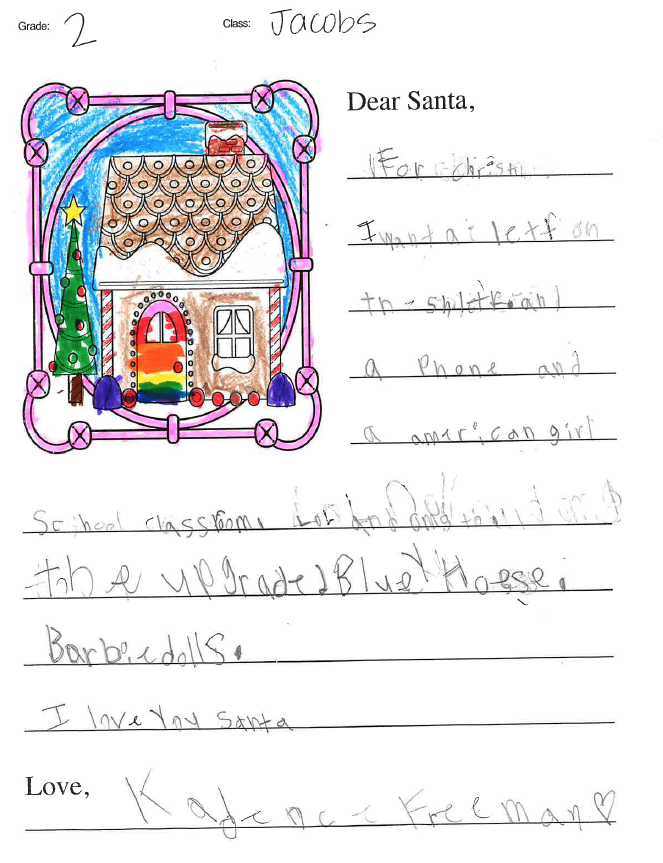 Grade: 2 Class: Jacobs
Dear Santa,
For christm
I want a
a Phone and
a american girl
School classroom.
the upgraded Bluey Hoese.
Barbiedolls.
I love You Santa
Love, Kadence Freeman♡